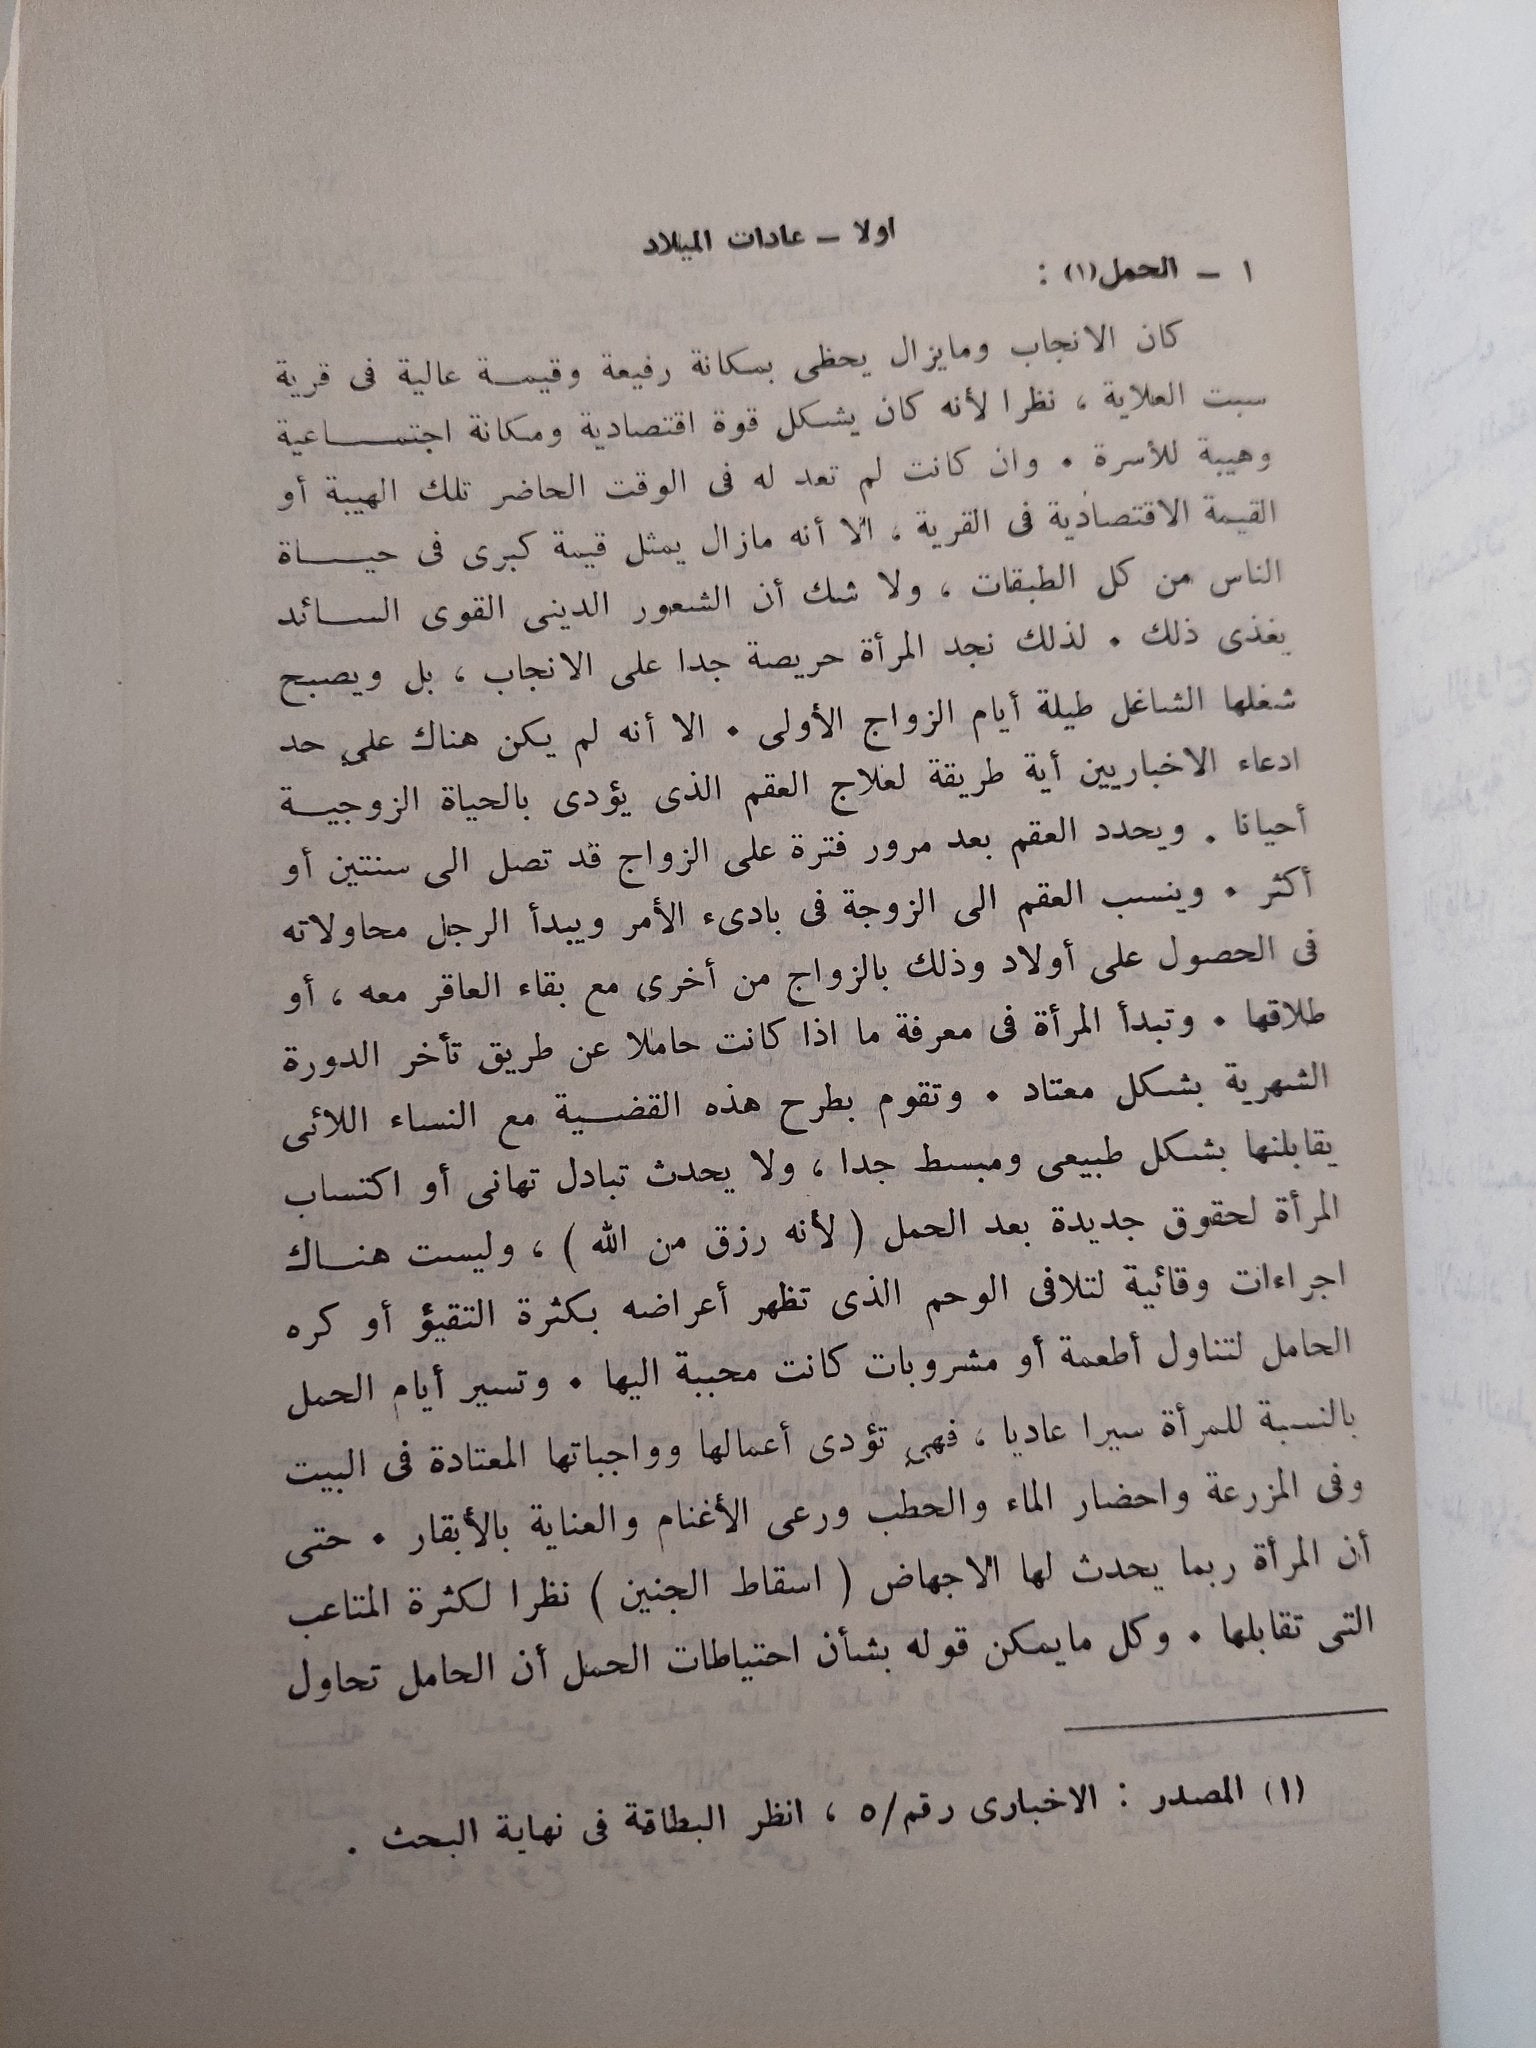 اولا ــ عادات الميلاد
١ ــ الحمل(١) :
كان الانجاب ومايزال يحظى بمكانة رفيعة وقيمـــة عالية فى قرية
سبت العلاية ، نظرا لأنه كان يشكل قوة اقتصادية ومكانة اجتمـــاعية
وهيبة للأسرة • وان كانت لم تعد له فى الوقت الحاضر تلك الهيبة أو
القيمة الاقتصادية فى القرية ، الا أنه مازال يمثل قيمة كبرى فى حيـــاة
الناس من كل الطبقات ، ولا شك أن الشعور الدينى القوى الســائد
يغذى ذلك • لذلك نجد المرأة حريصة جدا على الانجاب ، بل ويصبح
شغلها الشاغل طيلة أيام الزواج الأولى • الا أنه لم يكن هناك على حد
ادعاء الاخباريين أية طريقة لعلاج العقم الذى يؤدى بالحياة الزوجيـــة
أحيانا . ويحدد العقم بعد مرور فترة على الزواج قد تصل الى سنتين أو
أكثر • وينسب العقم الى الزوجة فى بادىء الأمر ويبدأ الرجل محاولاته
فى الحصول على أولاد وذلك بالزواج من أخرى مع بقاء العاقر معه ، أو
طلاقها • وتبدأ المرأة فى معرفة ما اذا كانت حاملا عن طريق تأخر الدورة
الشهرية بشكل معتاد • وتقوم بطرح هذه القضـــية مع النساء اللائى
يقابلنها بشكل طبيعى ومبسط جدا ، ولا يحدث تبادل تهانى أو اكتساب
المرأة لحقوق جديدة بعد الحمل ( لأنه رزق من الله ) ، وليست هنــاك
اجراءات وقائية لتلافى الوحم الذى تظهر أعراضه بكثرة التقيؤ أو كره
الحامل لتناول أطعمة أو مشروبات كانت محببة اليها • وتسير أيام الحمل
بالنسبة للمرأة سيرا عاديا ، فهى تؤدى أعمالها وواجباتها المعتادة فى البيت
وفى المزرعة واحضار الماء والحطب ورعى الأغنام والعناية بالأبقار • حتى
أن المرأة ربما يحدث لها الاجهاض ( اسقاط الجنين ) نظرا لكثرة المتاعب
التى تقابلها • وكل مايمكن قوله بشأن احتياطات الحمل أن الحامل تحاول
(١) المصدر : الاخبارى رقم/٥ ، انظر البطاقة فى نهاية البحث .